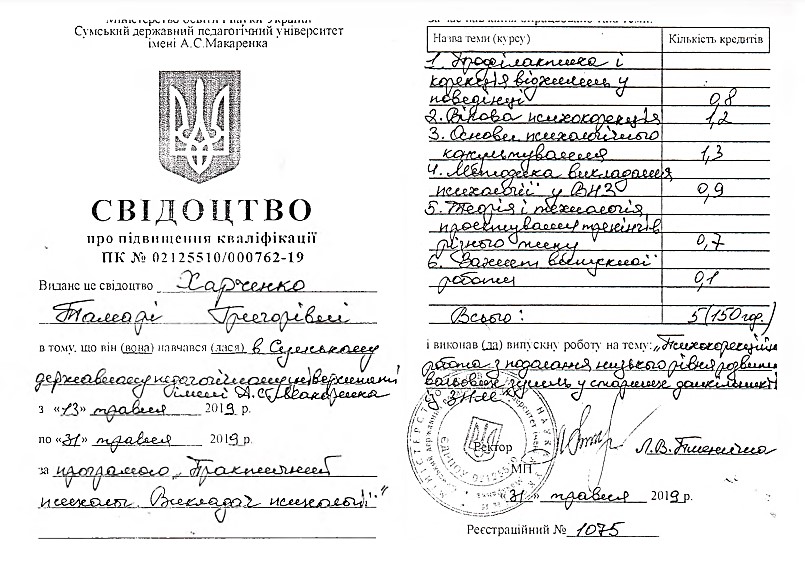 Міністерство освіти і науки України
Сумський державний педагогічний університет
імені А.С.Макаренка
СВІДОЦТВО
про підвищення кваліфікації
ПК № 02125510/000762-19
Видане це свідоцтво Харченко
Тамарі Григорівні
в тому, що він (вона) навчався (лася) в Сумському
державному педагогічному університеті
імені А.С. Макаренка
з «13» травня 2019 р.
по «31» травня 2019 р.
за програмою „Практичний
психолог. Викладач психології"
За час навчання опрацьовано такі теми:
Назва теми (курсу) Кількість кредитів
1. Профілактика і
корекція відхилень у
поведінці 0,8
2. Вікова психокорекція 1,2
3. Основи психологічного
консультування 1,3
4. Методика викладання
психології у ВНЗ 0,9
5. Теорія і технологія
проектування тренінгів
різного типу 0,7
6. Захист випускної
роботи 0,1
Всього: 5 (150 год.)
і виконав (ла) випускну роботу на тему: „Психокорекційна
робота з подолання низького рівня розвитку
вольових зусиль у старших дошкільників
із ЗНМ"
Ректор Л.В. Пшенична
МП
«31» травня 2019 р.
Реєстраційний № 1075